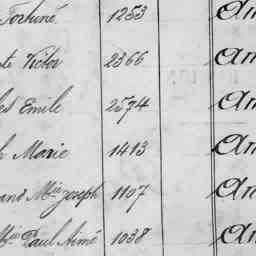 Fortuné 1253 Am
te Victor 2366 Am
es Emile 2574 Am
h Marie 1413 Am
and Mie Joseph 1107 Am
Mie Paul Aimé 1038 Am